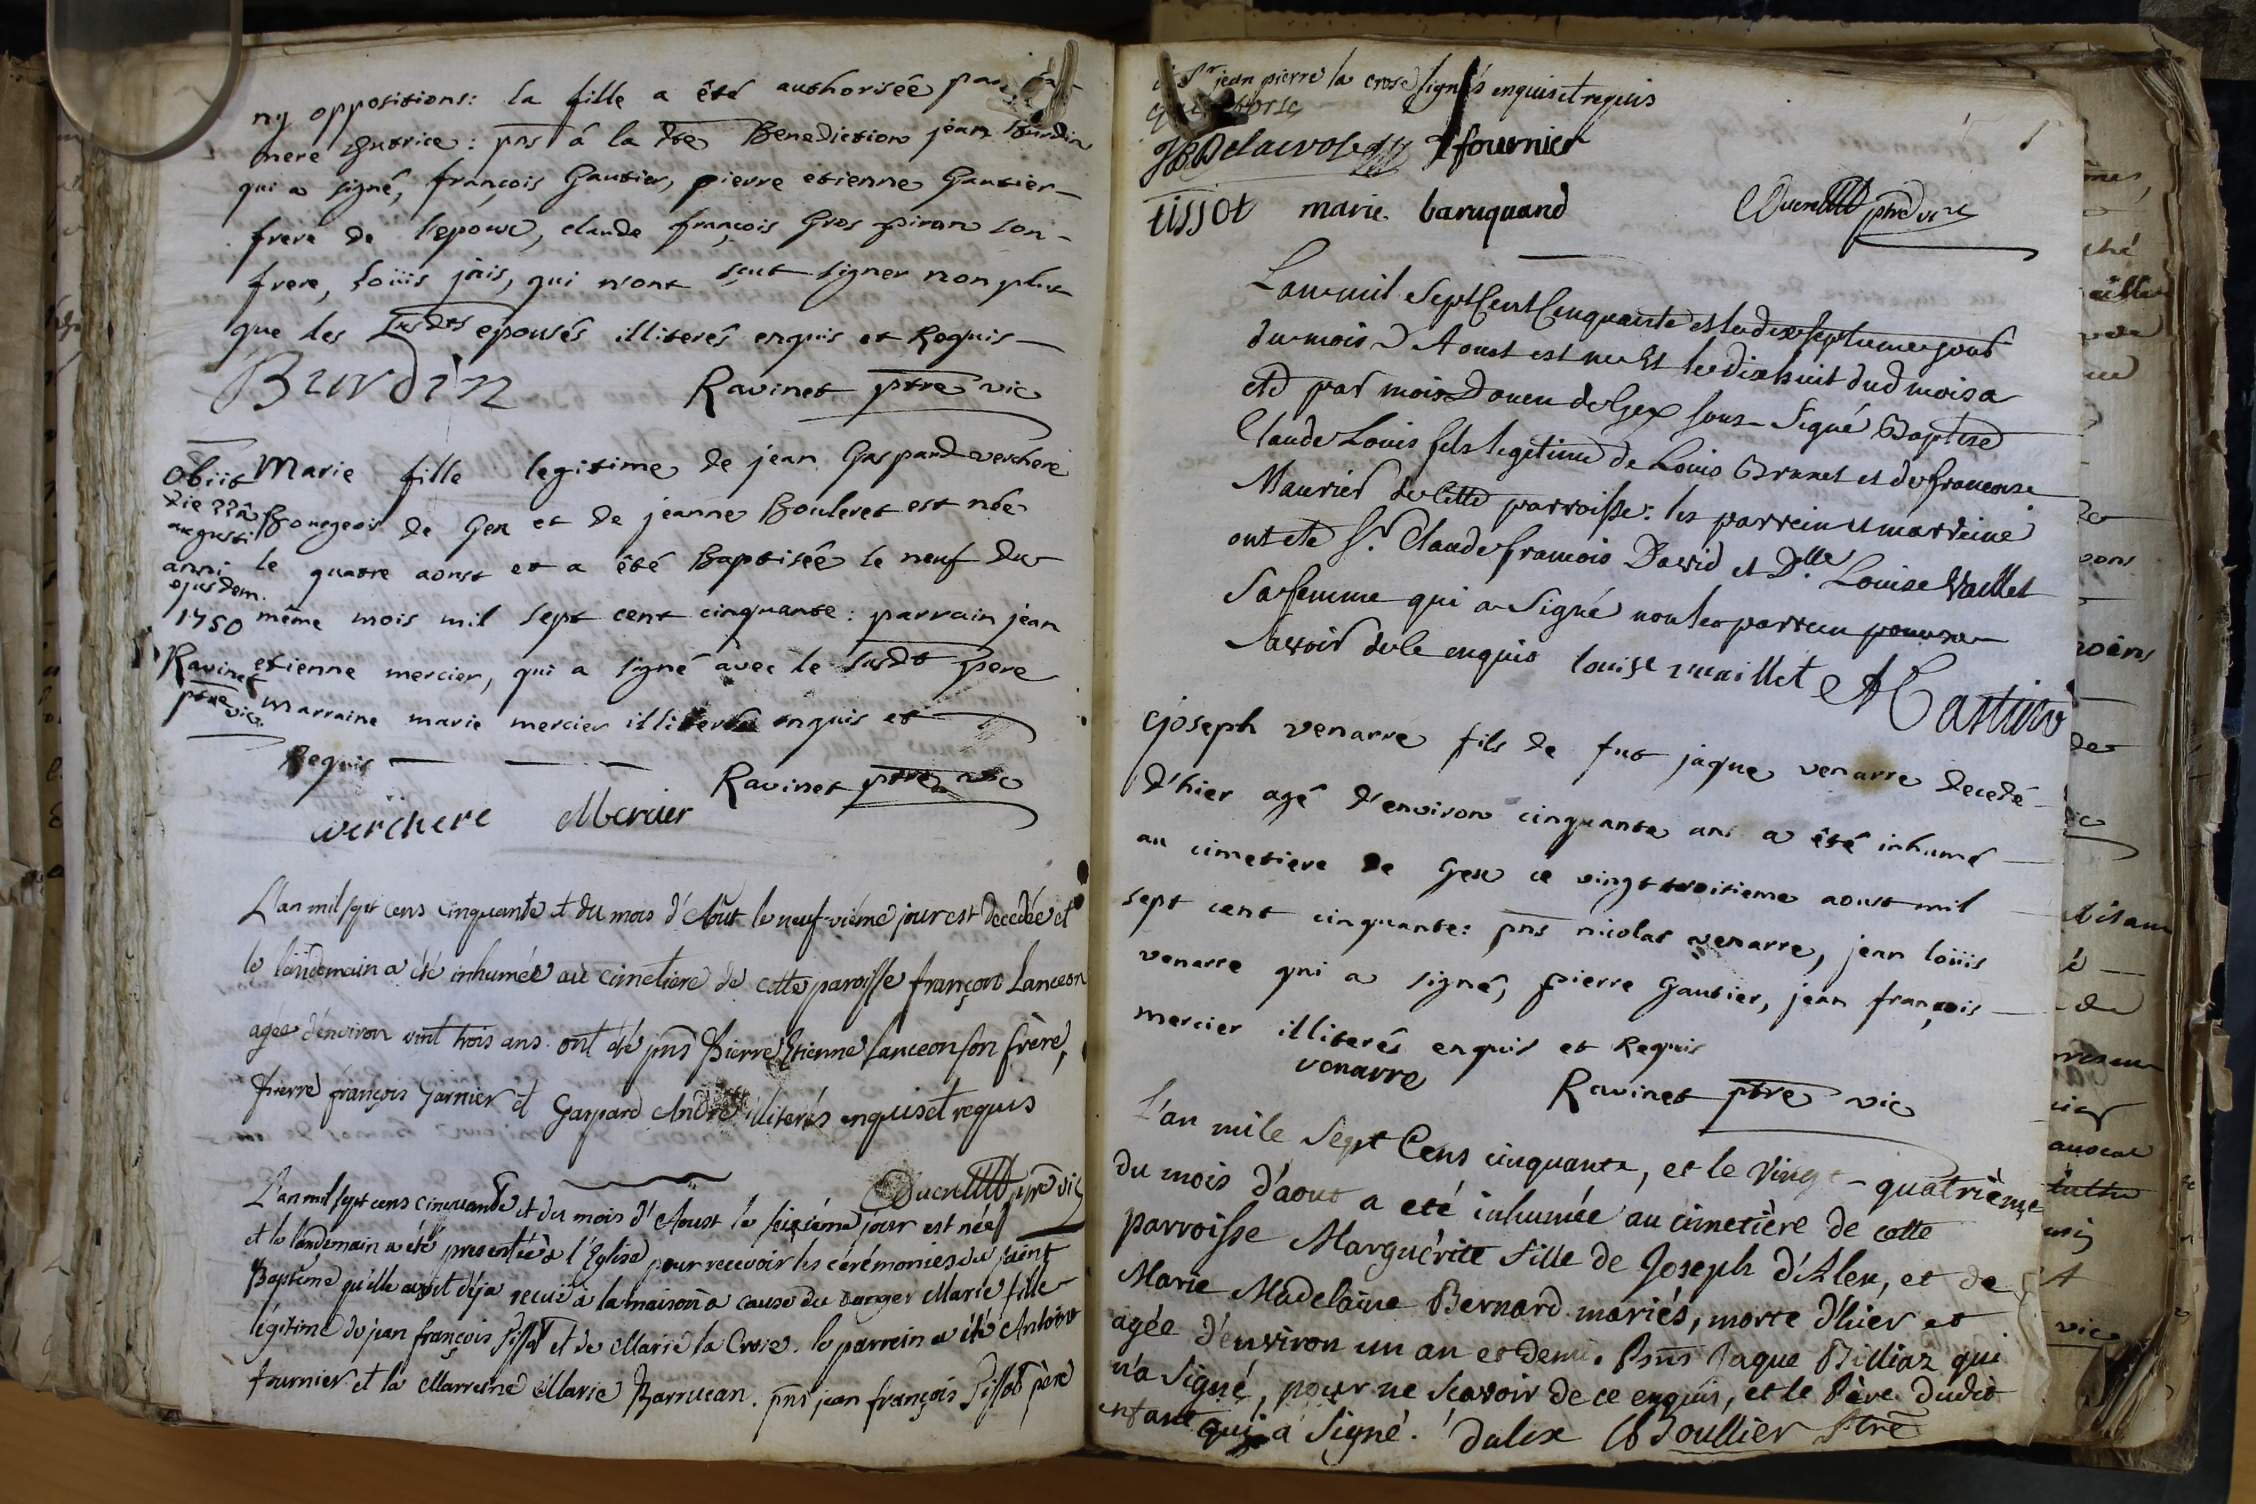 ny oppositions: la fille a êté authorisée par sa
mere tutrice: pns â la dte Benediction jean Burdin
qui a signé, françois Gautier, pierre etienne Gautier
frere de l'epouse, claude françois Gros piron son
frere, Loüis jais, qui n'ont sçut signer non plus
que les susdts épousés illiterés enquis et Requis
Burdin Ravinet ptre vic
Obiit
die 22â
augusti
anni
ejusdem.
1750
Ravinet
ptre
vic.
Marie fille legitime de jean Gaspard verchere
Bourgeois de Gex et de jeanne Bouleret est née
le quatre aoust et a êté Baptisée le neuf du
même mois mil sept cent cinquante: parrain jean
etienne mercier, qui a signé âvec le susdt pere
marraine marie mercier illiterée enquis et
Requis Ravinet ptre vic
verchere Mercier
L'an mil sept cens cinquante et du mois d'Aout le neuf-viéme jour est decedée et
le landemain a été inhumée au cimetiere de cette paroisse françoise Lanceon
agée d'environ vint trois ans. ont été pns Pierre Etienne Lanceon son frère,
pierre françois Garnier et Gaspard André illiterés enquis et requis
ptre vic
L'an mil sept cens cinquante et du mois d'Aoust le seiziéme jour est née
et le landemain a été presentée à l'Eglise pour recevoir les cérémonies du saint
Baptême qu'elle avoit déja reçuë à la maison a cause du danger Marie fille
légitime de jean françois Tissot et de Marie la Crose. le parrein a été Antoine
fournier et la Marreine Marie Barrucan. pns jean françois Tissot père
Sr jean pierre la crose signés enquis et requis
fournier
tissot marie baruquand ptre vic
L'an mil Sept Cent Cinquante et le dix septieme jour
du mois D'Aoust est ne Et le dix huit dud mois a
eté par moi Doien de Gex sous-Signé Baptisé
Claude Louis fils legitime de Louis Brunet et de francoise
Maurier de Cette parroisse: les parrein et marreine
ont eté Sr. Claude francois David et Dlle Louise Vaillet
Sa femme qui a Signé non le parrein pour ne
Savoir de le enquis louise vuaillet Martin
joseph venarre fils de fut jaque venarre decedé
d'hier agé d'environ cinquante ans a êté inhumé
au cimetiere de Gex ce vingt troisieme aoust mil
sept cent cinquante: pns nicolas venarre, jean loüis
venarre qui a signé, pierre Gautier, jean françois
mercier illiterés enquis et Requis
venarre Ravinet ptre vic
L'an mile Sept Cens cinquante, et le Vingt-quatrième
du mois d'aout a eté inhumée au cimetière de cette
parroisse Marguérite fille de Joseph d'Alex, et de
Marie Madelaine Bernard mariés, morte d'hier et
agée d'environ un an et demi. Psns Jaque Billiaz qui
n'a Signé, pour ne Scavoir de ce enquis, et le Père dudit
enfant qui a Signé. dalex Boullier Ptre